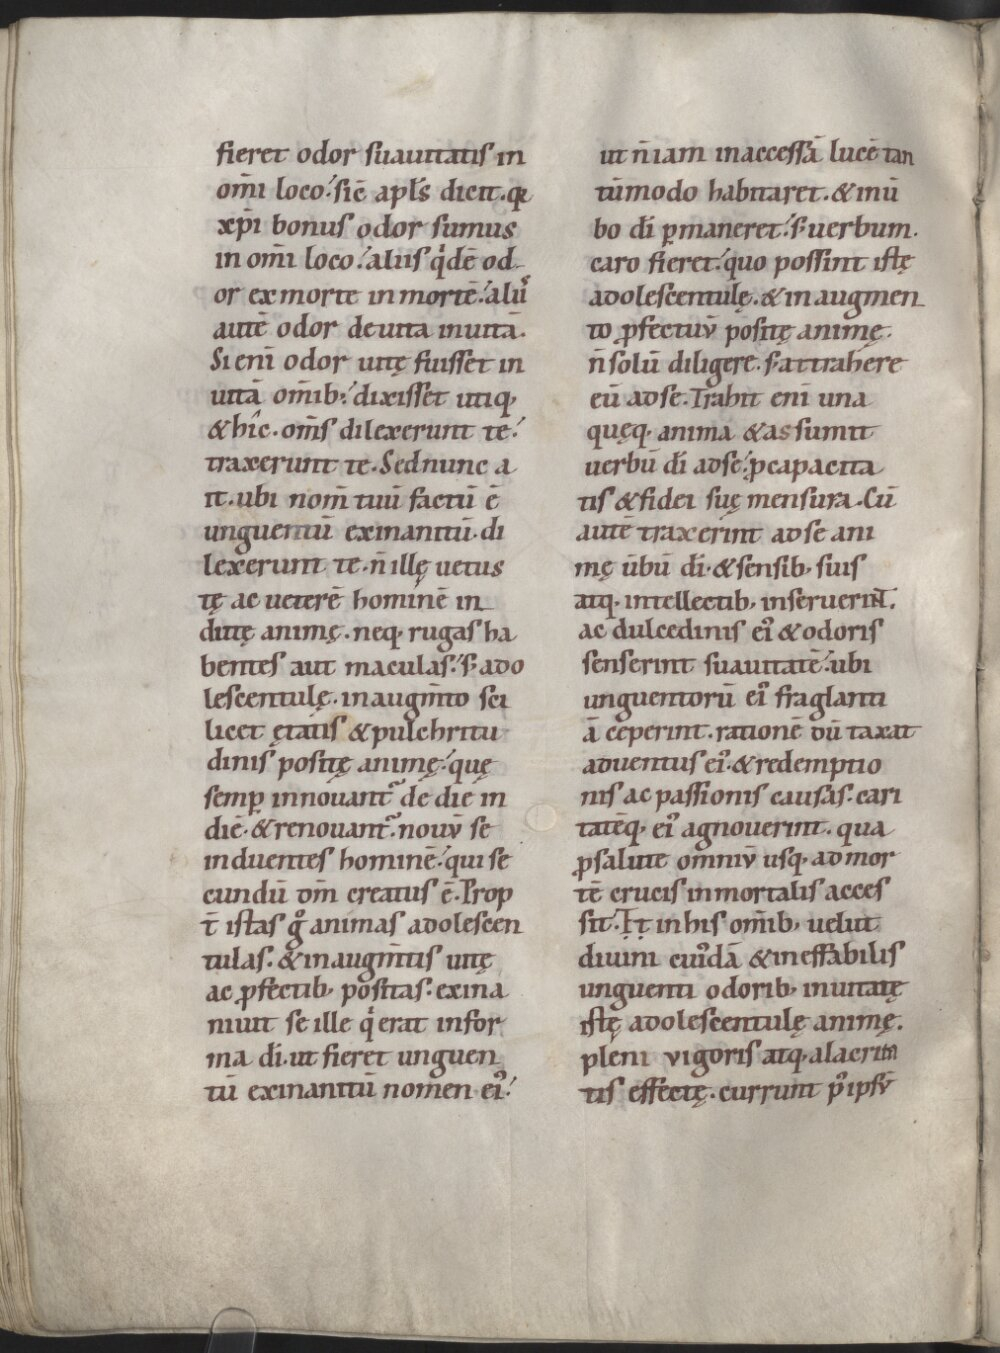 fieret odor suauitatis in
om̄i loco. sic̄ apl̄s dicit. qꝛ
xp̄i bonus odor sumus
in om̄i loco. aliis qͥdē od
or ex morte in mortē. aliiͬ
autē odor de uita in uitā.
Si eni̅ odor uitę fuisset in
uitā om̄ibꝰ. dixisset utiqꝫ
& hi̅c. om̄s dilexerunt te.
traxerunt te. Sed nunc a
it. ubi nom̄ tuū factū ē
unguentū exinanitū. di
lexerunt te. n̄ illę uetus
tę ac ueterē hominē in
ditę animę. neqꝫ rugas ha
bentes aut maculas. s; ado
lescentulę. in augm̄to sci
licet ętatis & pulchritu
dinis positę animę. quę
semꝑ innouant᷑ de die in
diē. & renouant᷑. nouū se
induentes hominē. qui se
cundū dm̄ creatus ē. Prop
t̄ istas gͦ animas adolescen
tulas. & in augm̄tis uitę
ac ꝓfectibꝫ positas. exina
niuit se ille qͥ erat in for
ma dī. ut fieret unguen
tū exinanitū nomen eiꝰ.
ut n̄ iam inaccessā lucē tan
tūmodo habitaret. & in ū
bo dī ꝑmaneret. s; uerbum
caro fieret. quo possint istę
adolescentulę. & in augmen
to ꝓfectuū positę animę.
n̄ solū diligere. s; attrahere
eū ad se. Trahit eni̅ una
quęqꝫ anima & assumit
uerbū dī ad se. ꝓ capacita
tis & fidei suę mensura. Cū
autē traxerint ad se ani
mę ūbū dī. & sensibꝫ suis
atqꝫ intellectibꝫ inseruerint.
ac dulcedinis eiꝰ & odoris
senserint suauitatē. ubi
unguentorū eiꝰ fraglanti
ā ceperint. rationē dū taxat
aduentus eiꝰ. & redemptio
nis ac passionis causas. cari
tatēqꝫ eiꝰ agnouerint. qua
ꝓ salute omniū usqꝫ ad mor
tē crucis inmortalis acces
sit. It in his om̄ibꝫ uelut
diuini cuiꝰdā & ineffabilis
unguenti odoribꝫ inuitatę
istę adolescentulę animę.
pleni uigoris atqꝫ alacrita
tis effectę. currunt pꝰ ipsū